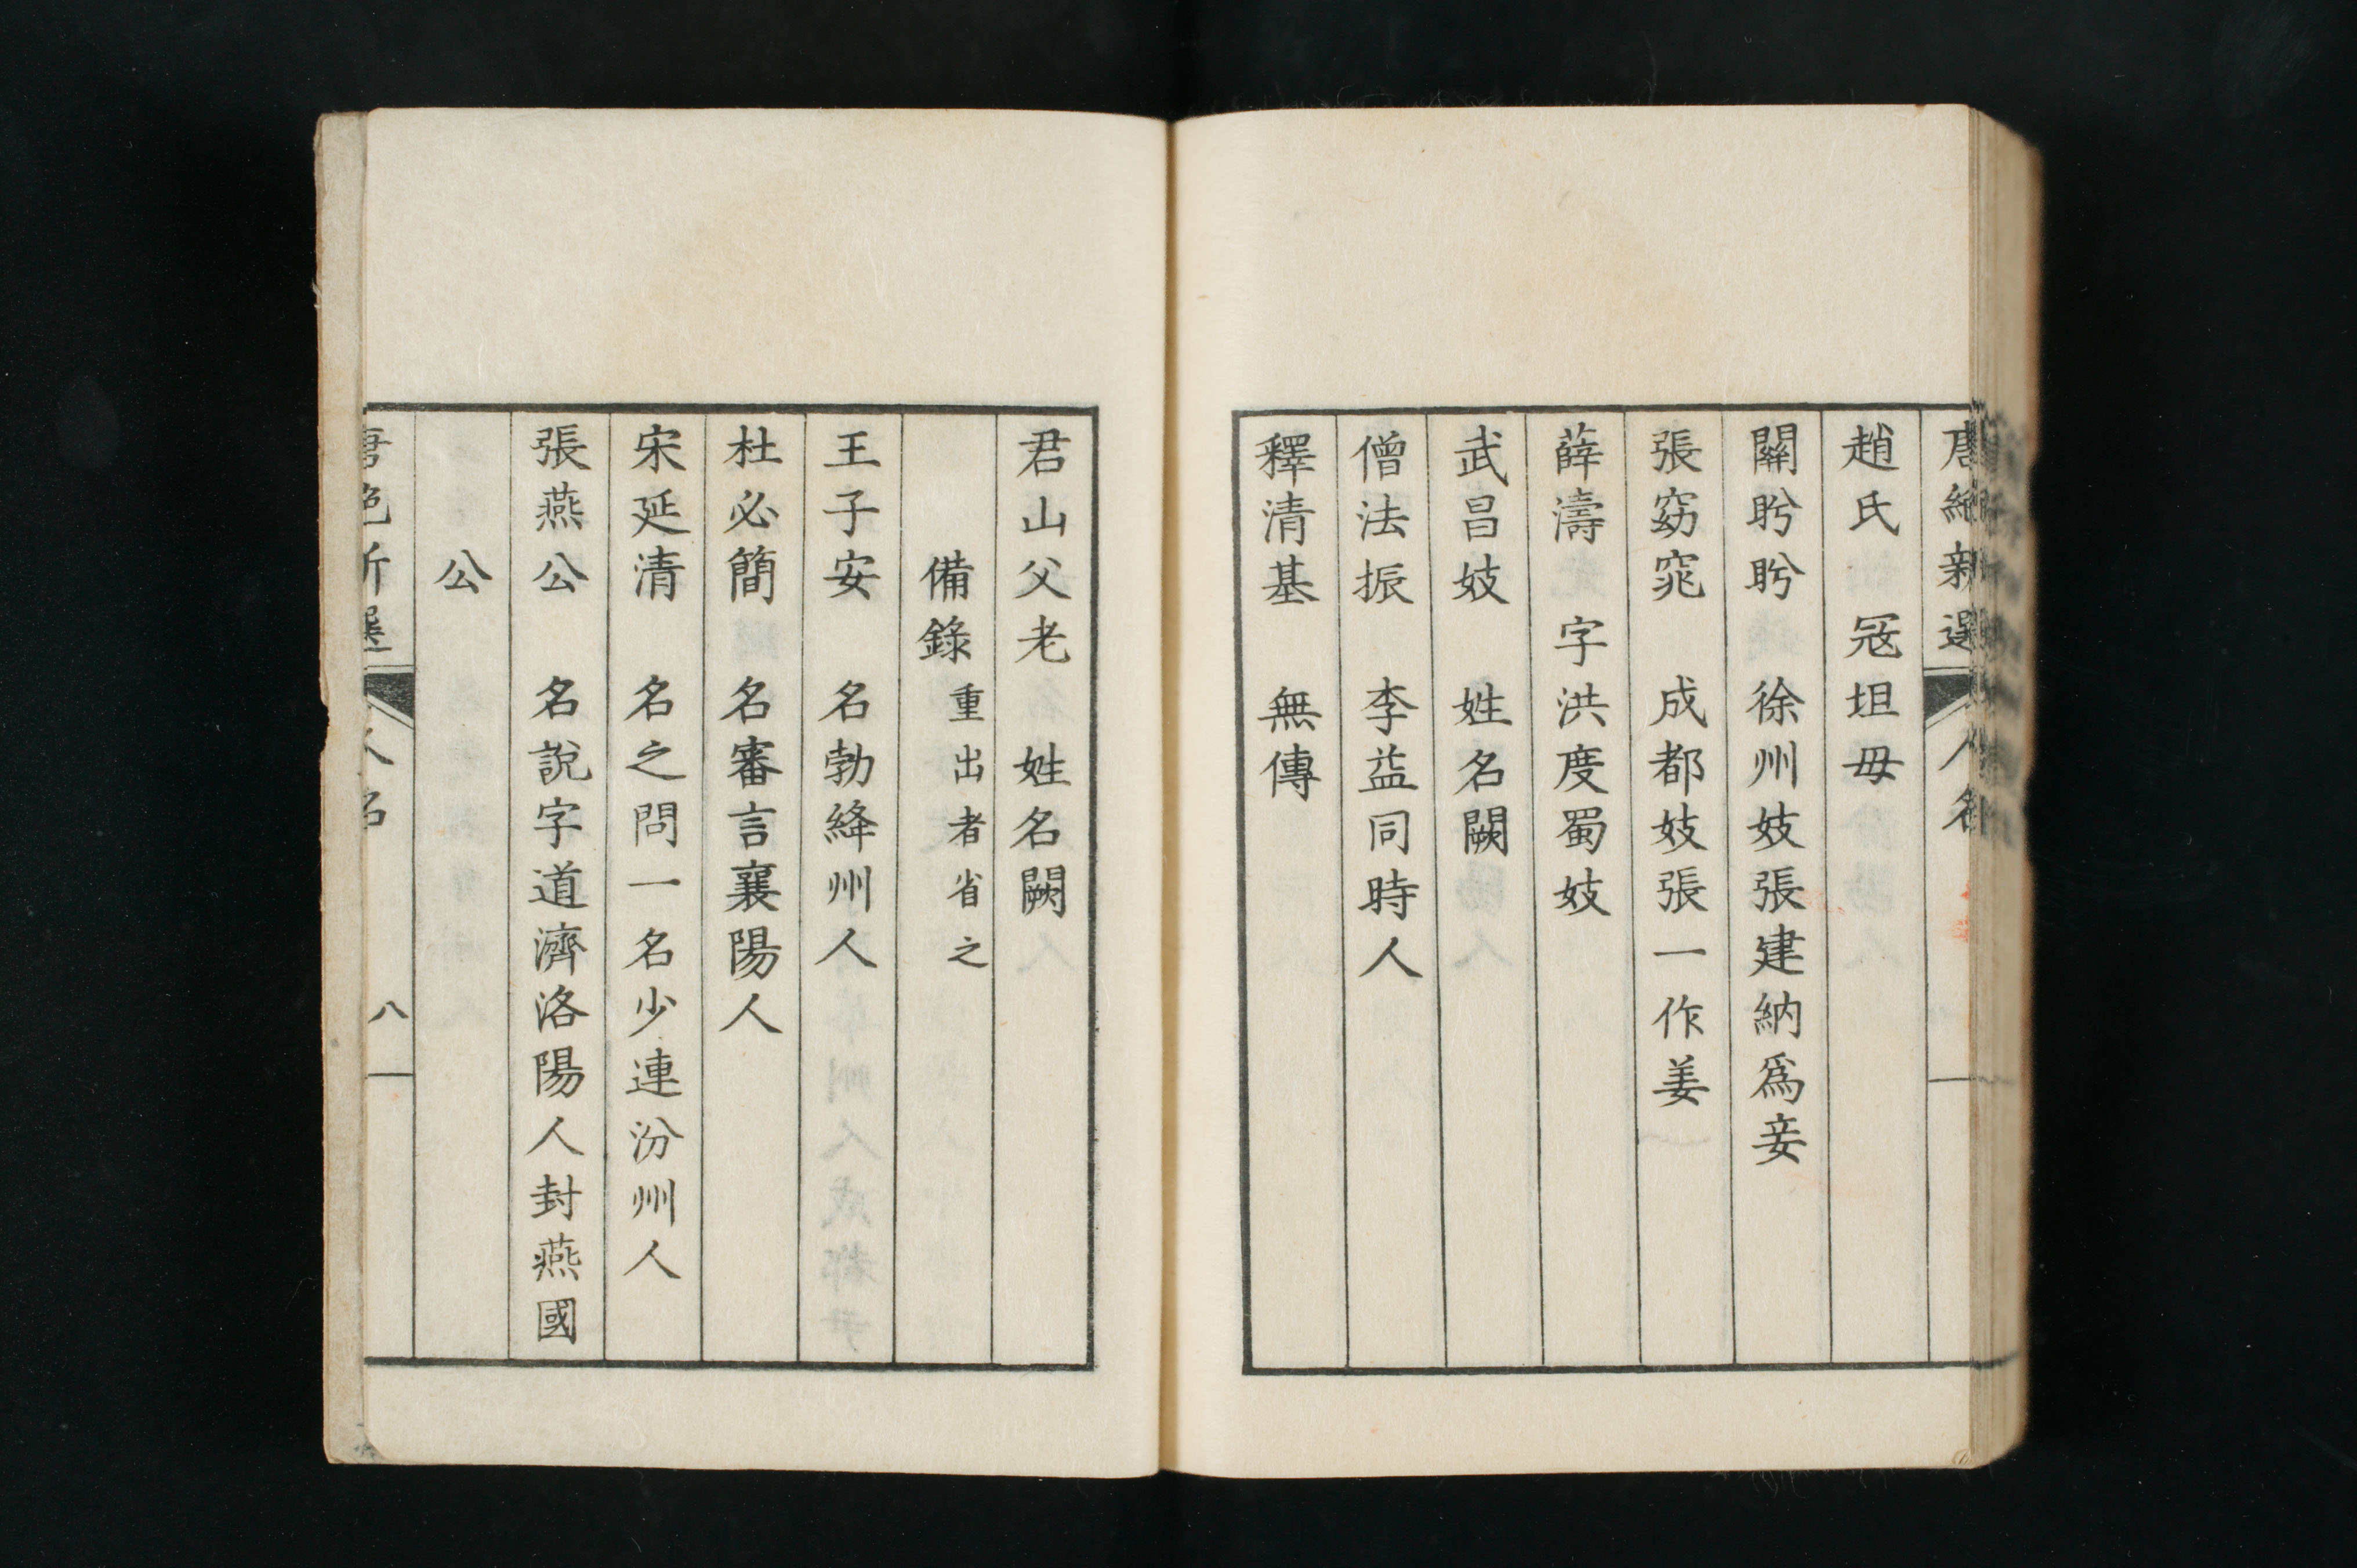 唐絕新選 人名
趙氏 冦坦毋
關盻盻 徐州妓張建納爲妾
張窈窕 成都妓張一作姜
薛濤 字洪度蜀妓
武昌妓 姓名闕
僧法振 李益同時人
釋清基 無傳
君山父老 姓名闕
備錄 重出者省之
王子安 名勃絳州人
杜必簡 名審言襄陽人
宋延清 名之問一名少連汾州人
張燕公 名說字道濟洛陽人封燕國
公 公
唐絕新選 人名 八